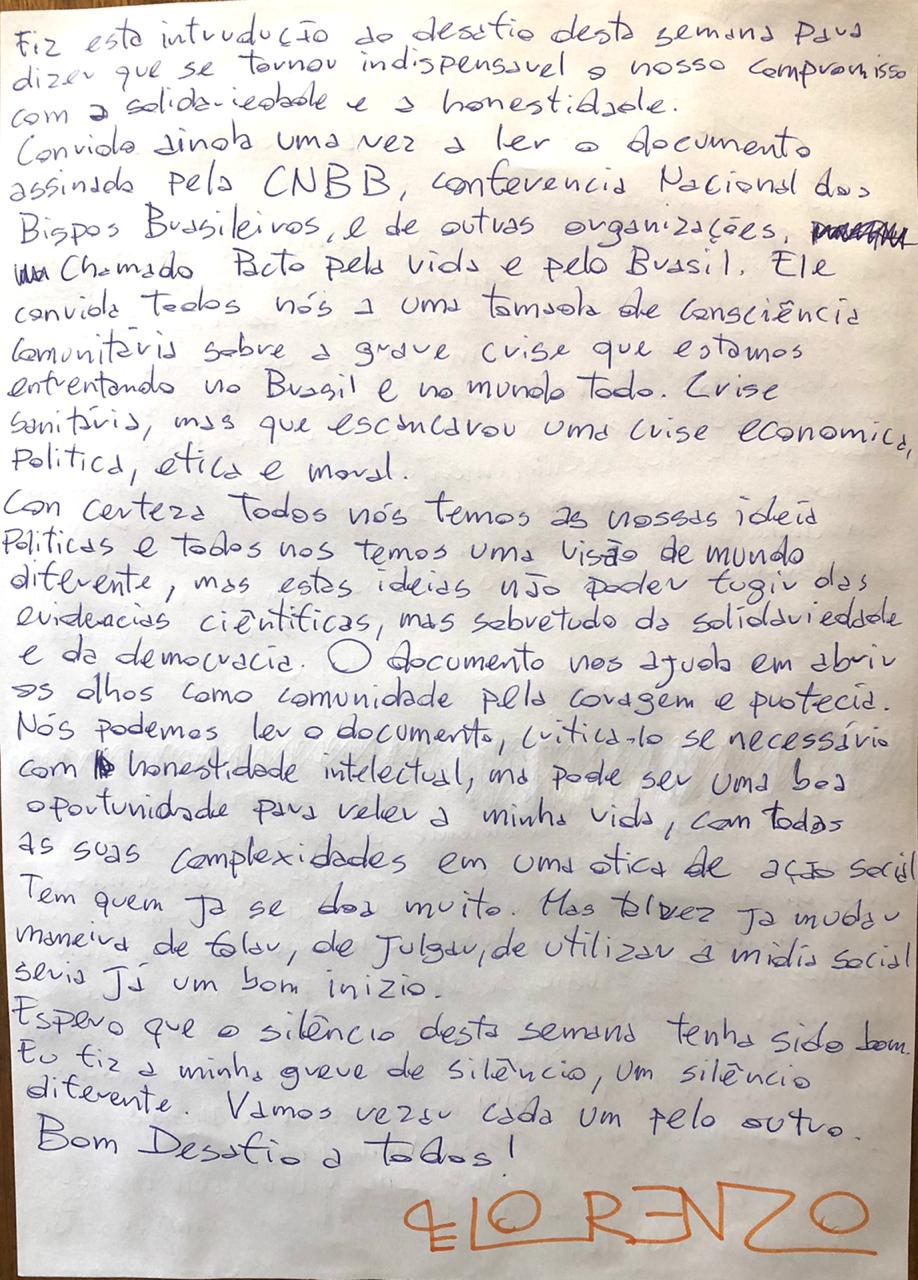 Fiz esta introdução ao desafio desta semana para
dizer que se tornou indispensavel o nosso compromisso
com a solidariedade e a honestidade.
Convido ainda uma vez a ler o documento
assinado pela CNBB, conferencia Nacional dos
Bispos Brasileiros, e de outras organizações,
Chamado Pacto pela vida e pelo Brasil. Ele
convida todos nós a uma tomada de consciência
comunitária sobre a grave crise que estamos
enfrentando no Brasil e no mundo todo. Crise
sanitária, mas que escancarou uma crise economica,
politica, etica e moral.
Con certeza todos nós temos as nossas ideia
Politicas e todos nos temos uma visão de mundo
diferente, mas estas ideias não poder fugir das
evidencias científicas, mas sobretudo da solidariedade
e da democracia. O documento nos ajuda em abrir
os olhos como comunidade pela coragem e profecia.
Nós podemos ler o documento, critica-lo se necessário
com honestidade intelectual, ma pode ser uma boa
oportunidade para reler a minha vida, com todas
as suas complexidades em uma otica de ação social
Tem quem ja se doa muito. Mas talvez ja mudar
maneira de falar, de julgar, de utilizar a midia social
seria já um bom inizio.
Espero que o silêncio desta semana tenha sido bom.
Eu fiz a minha greve de silêncio, um silêncio
diferente. Vamos rezar cada um pelo outro.
Bom Desafio a todos!
LORENZO